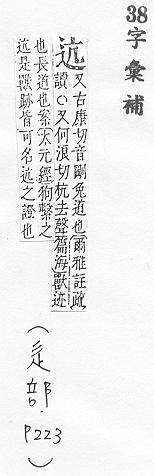 38字彙補
迒
又古康切音剛兔道也爾雅註疏
讀○又何浪切杭去聲篇海獸迹
也長道也案太元經狗繫之
迒是獸跡皆可名迒之證也
(辵部.
P223)